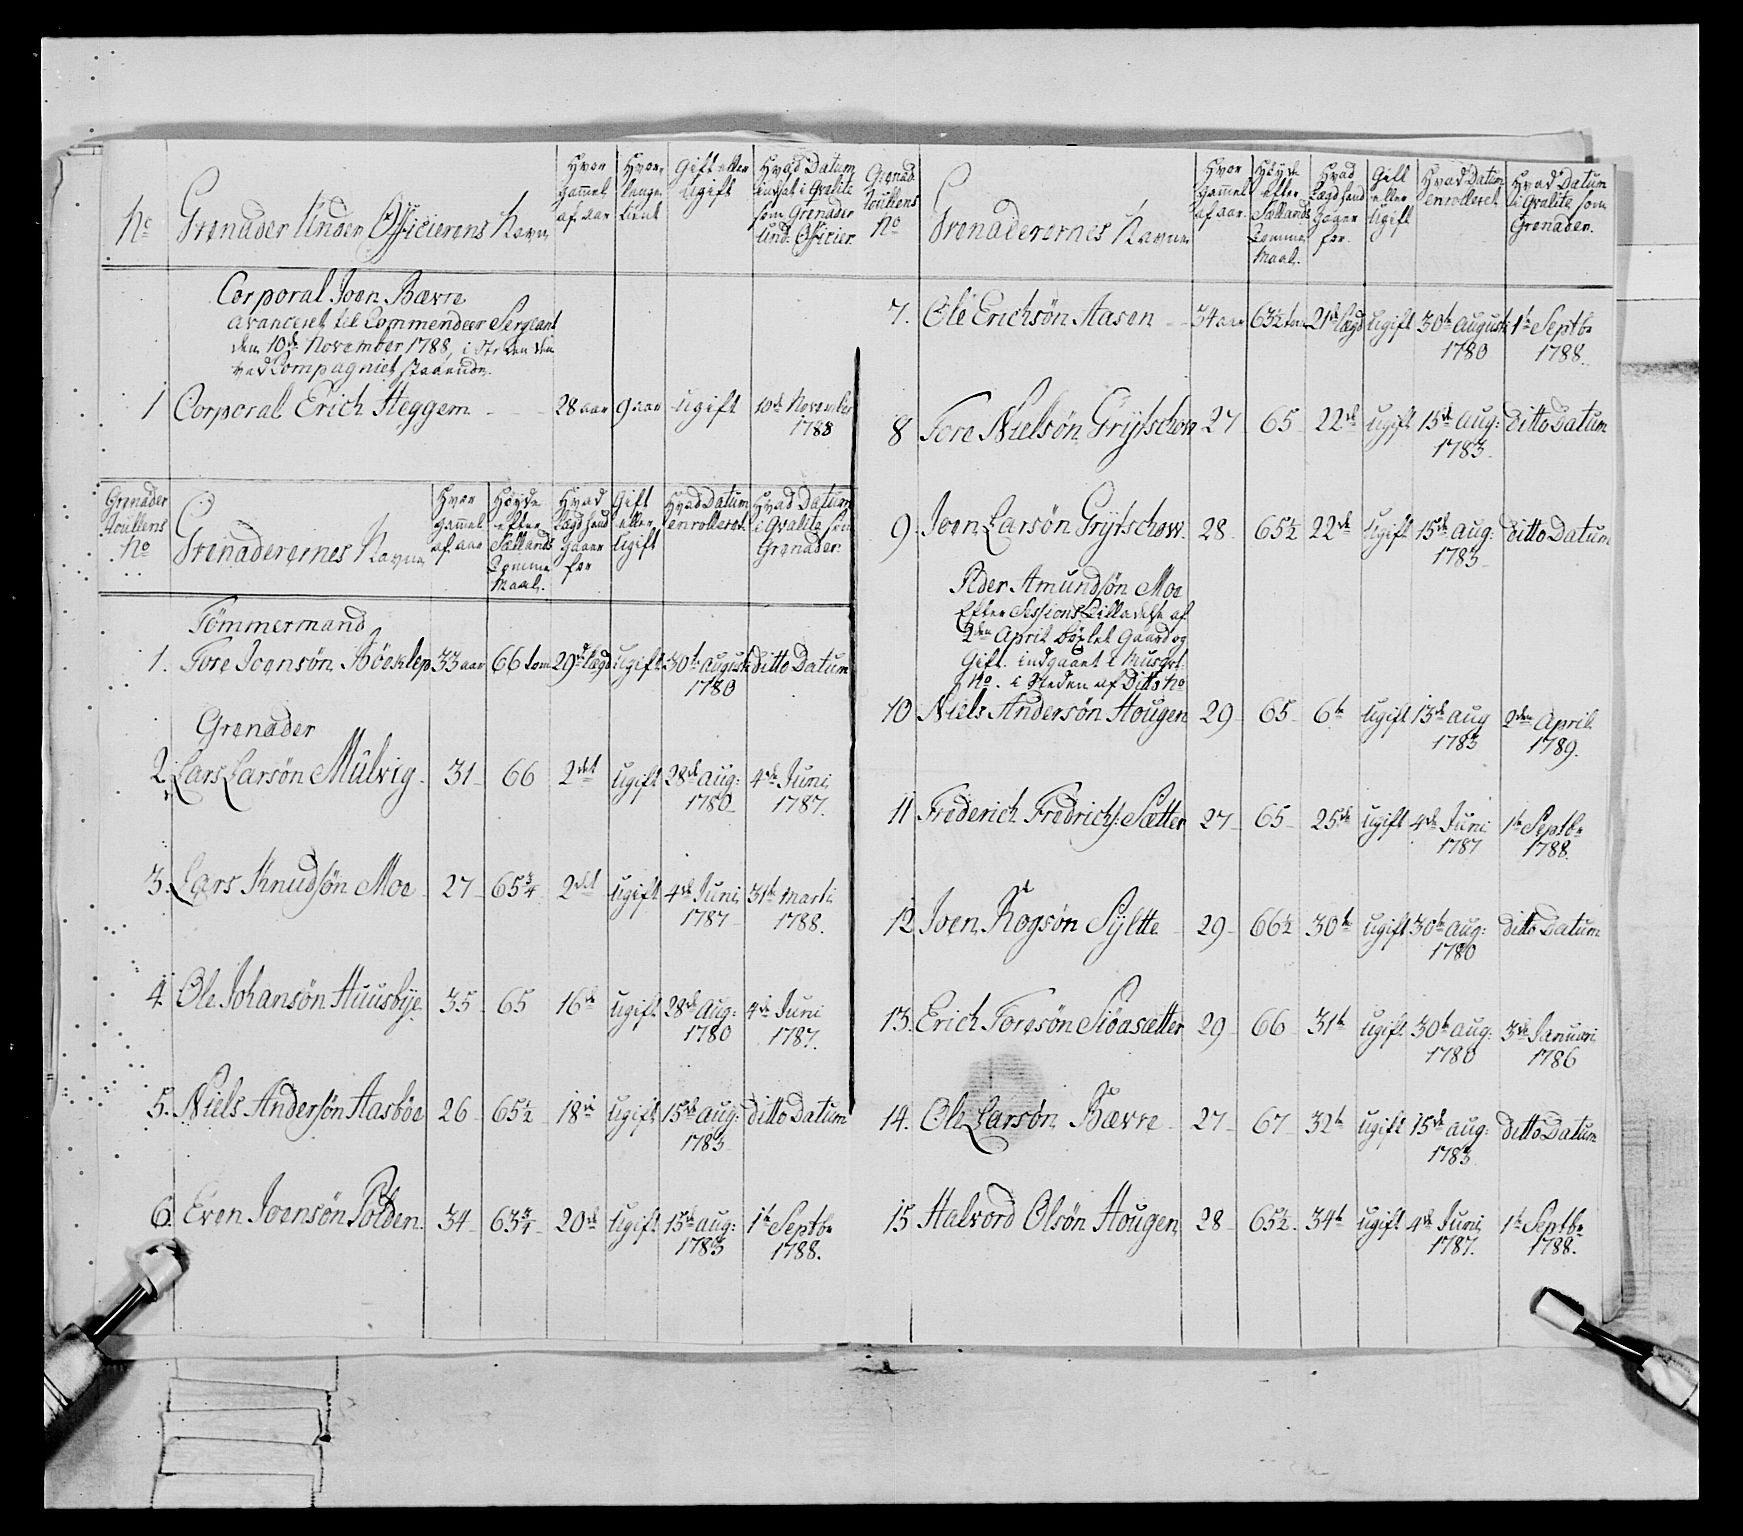 No
Grenader Under Officierens Navn
Hvor gammel af aar
Hvor længe tient
Gift eller ugift
Hvad Datum indsat i Qvalite som Grenader Und. Officier.
Corporal Joen Bævre
avanceret til Commendeer Sergeant
den 10de November 1788, i Steden den
ved Compagniet staaende.
1 Corporal Erich Heggem 28 aar 9 aar ugift 10de November
1788
Grenader
No
Grenaderernes Navne
Hvor gammel af aar
Høyde efter Siællands Tomme Maal.
Hvad Lægd hand gaaer for
Gift eller Ugift
Hvad Datum enrolleret.
Hvad Datum i Qvalite som Grenader.
Tömmermand
1. Tore Joensøn 33 aar 66 tom 29de Lægd ugift 30te august ditto Datum
1780
Grenader
2. Lars Larsøn Mülvig 31 66 2det ugift 28de aug: 4de Juni
1780 1787.
3. Lars Knudsøn Moe 27 65¾ 2det ugift 4de Juni 31te Marti
1787 1788.
4 Ole Johansøn Huusbye 35 65 16de ugift 28de Aug: 4de Juni
1780 1787.
5. Niels Andersøn Aasbøe 26 65½ 18de ugift 15de aug: ditto Datum
1783
6. Even Joensøn Polden 34 63¾ 20de Ugift 15de aug: 1te Septbr
1783 1788.
Grenad:
No
Grenaderernes Navne
Hvor gammel af aar.
Høyde efter Siællands Tomme Maal.
Hvad Lægd hand gaaer for.
Gift eller Ugift
Hvad Datum enrolleret
Hvad Datum i Qvalite som Grenader.
7. Ole Erichsøn Aasen 34 aar 63½ tom 21de Lægd Ugift 30te august 1te Septbr
1780 1788.
8 Tore Nielsøn Grytschow 27 65 22de ugift 15de aug: ditto Datum
1783
9. Joen Larsøn Grytschow 28 65½ 22de Ugift 15de aug: ditto Datum
1783
Peder Amundsøn Moe
Efter Sessions Tilladelse af
2den April bøxlet Gaard og
Gift. indgaaet i Musqvt:
No. i Steden af Ditto No
10 Niels Andersøn Hougen 29 65 6te ugift 15de aug 2den April
1783 1789.
11 Frederich Fredrichs: Sætter 27 65 25de ugift 4de Juni 1te Septbr
1787 1788.
12 Joen Rogsøn Syltte 29 66½ 30te ugift 30te aug: ditto Datum
1780
13. Erich Toresøn Siöasætter 29 66 31te ugift 30te aug: 3de Januari
1780 1786
14. Ole Larsøn Bævre 27 67 32te ugift 15de aug: ditto Datum
1783
15 Halvord Olsøn Hougen 28 65½ 34te ugift 4de Juni 1te Septbr
1787. 1788.